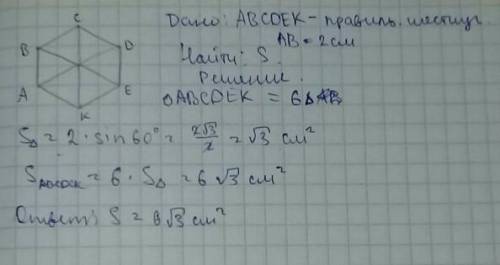 C
B D
A E
K
Дано: ABCDEK - правиль. шестиуг
AB = 2 см
Найти: S.
Решение.
ABCDEK = 6
S△ = 2 · sin 60° = 2√3/2 = √3 см²
S = 6 · S△ = 6 √3 см²
Ответ: S = 6√3 см²